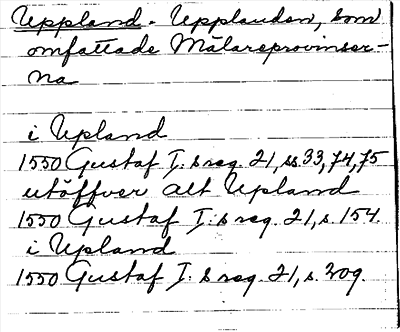 Uppland. Upplanden, som
omfattade Mälareprovinser-
na
i Upland
1550 Gustaf I:s reg. 21, ss. 33, 74, 75
utöffver alt Upland
1550 Gustaf I:s reg. 21, s. 154.
i Upland
1550 Gustaf I:s reg. 21, s. 309.